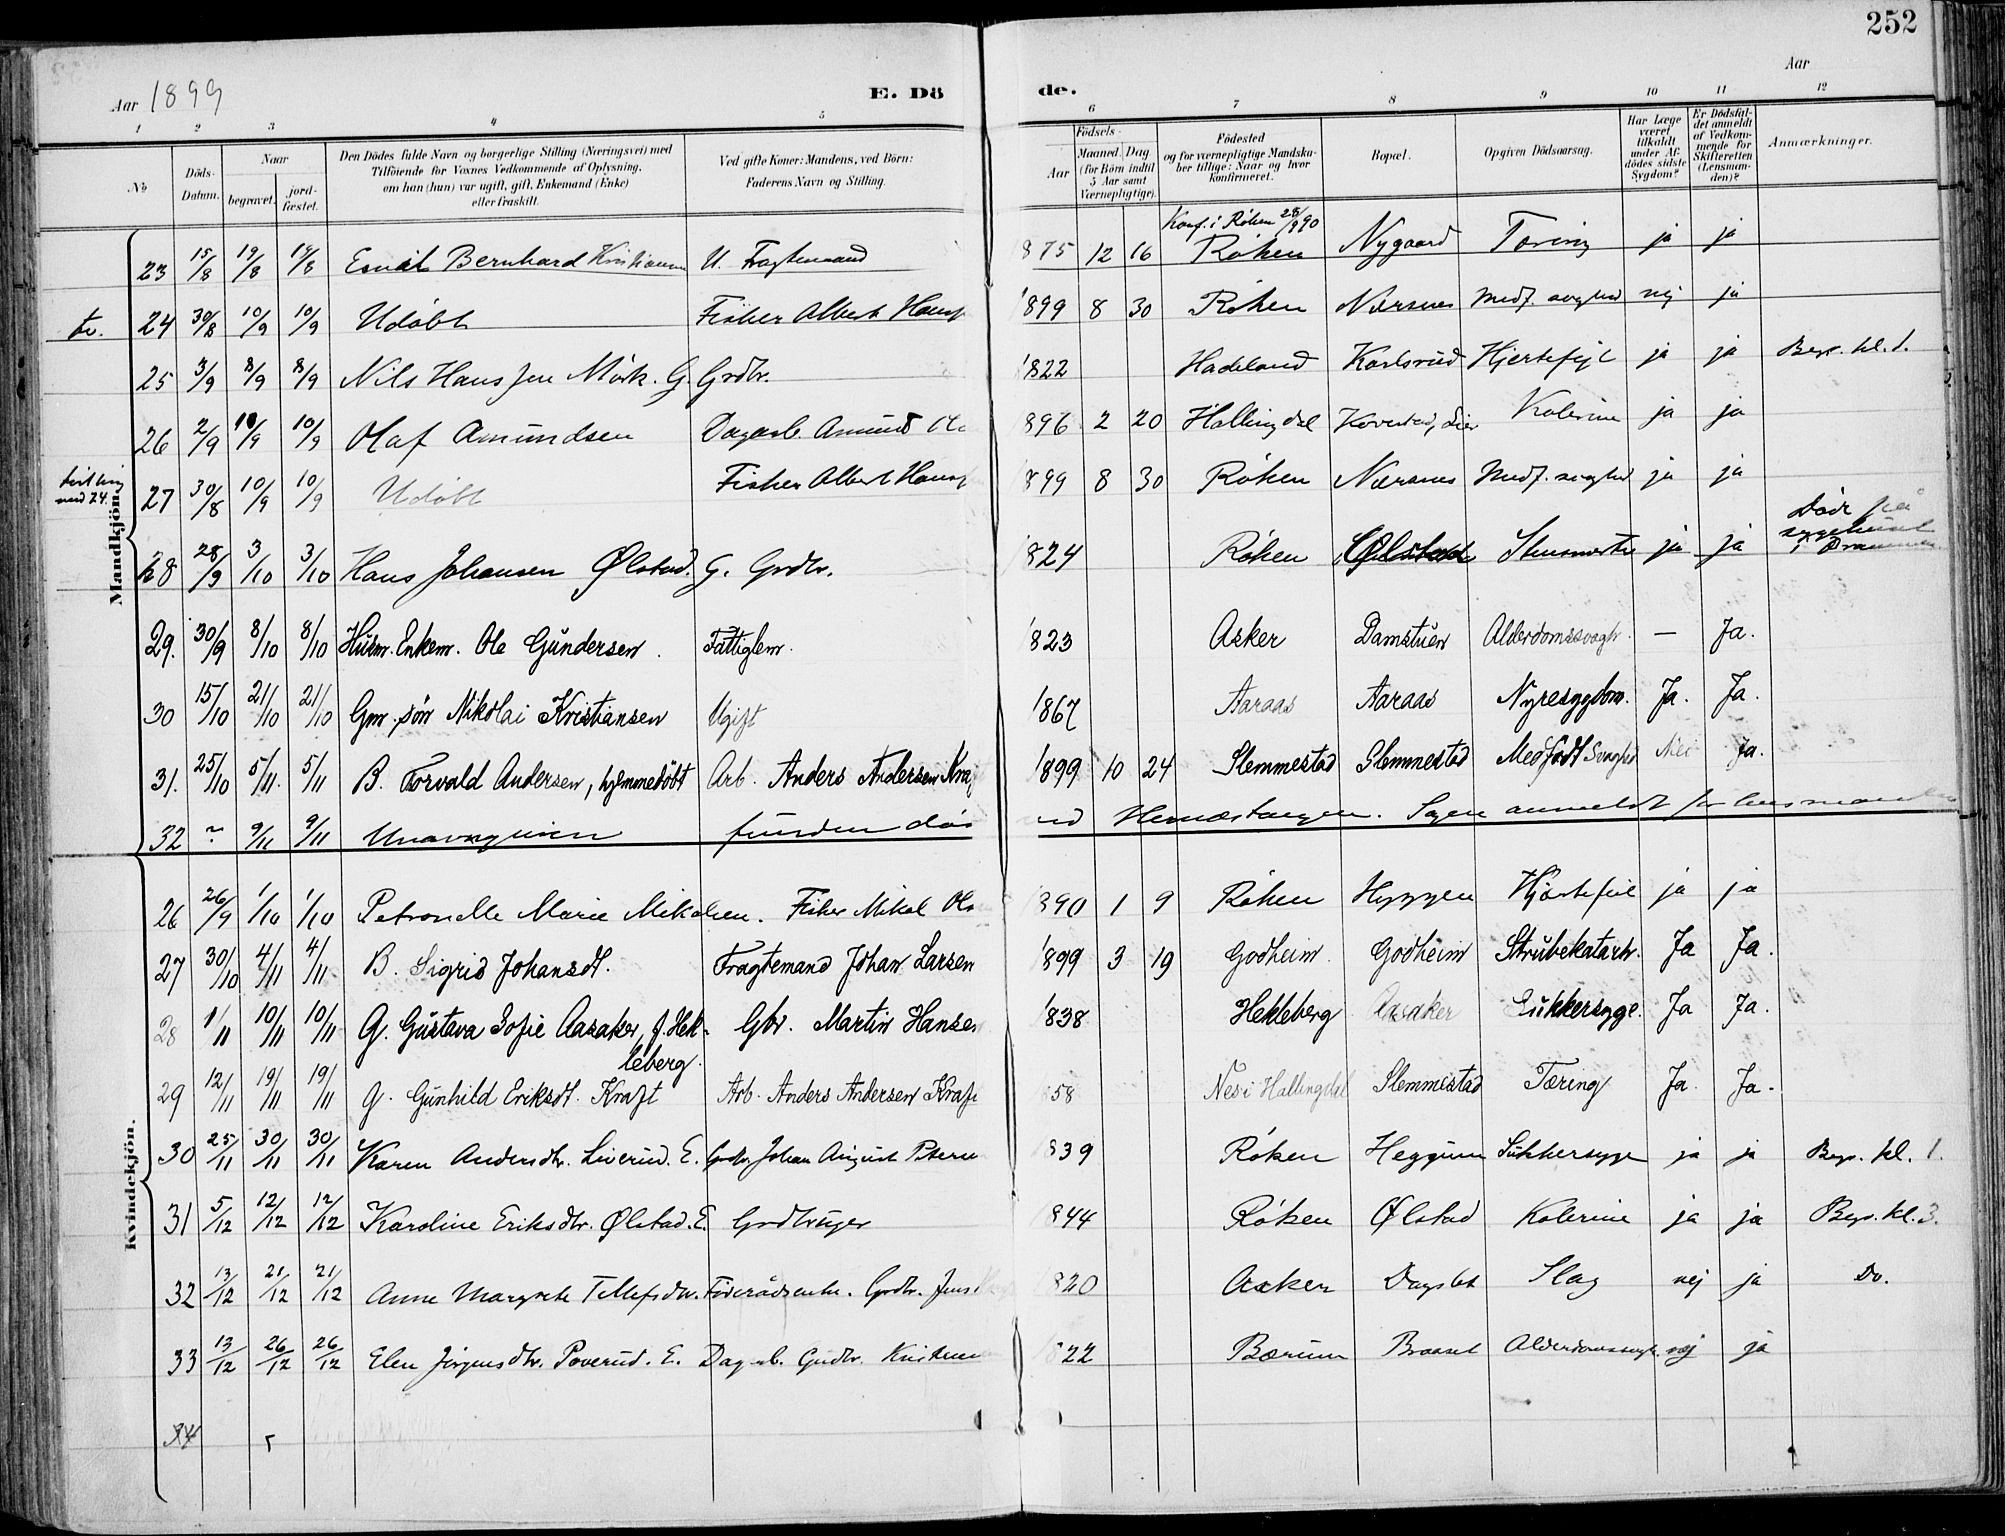 252
Aar 1899
E. Dö de.
Aar
1 2 3 4 5 6 7 8 9 10 11 12
No
Döds-Datum.
Naar
begravet.
jord-fæstet.
Den Dödes fulde Navn og borgerlige Stilling (Næringsvei) med
Tilföiende for Voxnes Vedkommende af Oplysning,
om han (hun) var ugift, gift, Enkemand (Enke)
eller fraskilt.
Ved gifte Koner: Mandens, ved Börn:
Faderens Navn og Stilling.
Födsels-
Aar
Maaned. Dag
(for Börn indtil
5 Aar samt
Værnepligtige).
Födested
og for værnepligtige Mandska-
ber tillige: Naar og hvor
konfirmeret.
Bopæl.
Opgiven Dödsaarsag.
Har Læge
været
tilkaldt
under Af-
dödes sidste
Sygdom?
Er Dödsfal-
det anmeldt
af Vedkom-
mende for
Skifteretten
(Lensman-
den)?
Anmærkninger.
Mandkjön.
Konf. i Røken 28/9 90
23 15/8 19/8 19/8 Emil Bernhard Kristiansen U. Fragtemand 875 12 16 Røken Nygaard Tæring ja ja
tv. 24 30/8 10/9 10/9 Udöbt Fisker Albert Hans 1899 8 30 Røken Nærsnes Medf. svaghed nej ja
25 3/9 8/9 8/9 Nils Hansen Mörk. G. Grdbr. 1822 Hadeland Karlsrud Hjertefejl ja ja Begr. kl. 1.
26 2/9 10/9 10/9 Olaf Amundsen Dagarb. Amund 896 2 20 Hallingdal Kovestad, Lier Kolerine ja ja
tvilling med 24. 27 30/8 10/9 10/9 Udöbt Fisker Albert Hans 899 8 30 Røken Nærsnes Medf. svaghed ja ja
28 28/9 3/10 3/10 Hans Johansen Ølstad. G. Grdbr. 1824 Røken Ølstad ja ja Död på sygehuset i Drammen
29. 30/9 8/10 8/10 Husm. Enkem. Ole Gundersen. Fattiglem. 1823 Asker Damstuen Alderdomssvagh. — Ja.
30 15/10 21/10 21/10 Gm. sön Nikolai Kristiansen Ugift 1867 Aaraas Aaraas Nyresygdom. Ja. Ja.
31. 25/10 5/11 5/11 B. Torvald Andersen, hjemmedöbt Arb. Anders Andersen Kraf 1899 10 24 Slemmestad Slemmestad Medfödt Svaghed Nei Ja.
32 ? 9/11 9/11 Unavngiven funden död ved Hernæstangen. Sagen anmeldt for lensmanden
Kvindekjön.
26 26/9 1/10 1/10 Petronelle Marie Mikalsen. Fisker Mikal Ols 1890 1 9 Røken Hyggen Hjærtefeil ja ja
27 30/10 4/11 4/11 B. Sigrid Johansdt. Fragtemand Johan Larsen 1899 3 19 Godheim Godheim Strubekatarh. Ja Ja.
28 1/11 10/11 10/11 G. Gustava Sofie Aasaker, f. Hek-leberg. Gbr. Martin Hansen 1838 Hekleberg Aasaker Sukkersyge. Ja Ja.
29 12/11 19/11 19/11 G. Gunhild Eriksdt. Kraft Arb. Anders Andersen Kraft 858 Nes i Hallingdal Slemmestad Tæring Ja. Ja.
30 25/11 30/11 30/11 Karen Andersdtr. Liverud. E. Grdbr. Johan August Peters 839 Røken Heggum Sukkersyge ja ja Begr. kl. 1.
31 5/12 12/12 12/12 Karoline Eriksdtr. Ølstad. E. Grdbruger 844 Røken Ølstad Kolerine ja ja Begr. kl. 3.
32 13/12 21/12 21/12 Anne Margrete Tellefsdtr. Föderådsenke. Grdbr. Jens 820 Asker Dagslet Slag nej ja Do.
33 13/12 26/12 26/12 Elen Jörgensdtr. Poverud. E. Dagarb. Gudbr. Kristens 822 Bærum Braaset Alderdomssvagh. nej ja
34